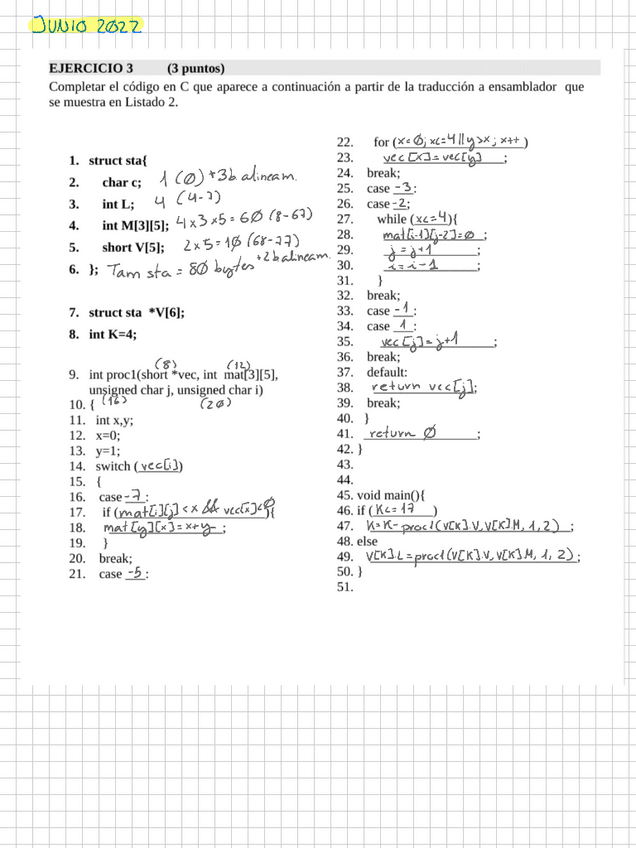 JUNIO 2022
EJERCICIO 3 (3 puntos)
Completar el código en C que aparece a continuación a partir de la traducción a ensamblador que
se muestra en Listado 2.
1. struct sta{
2. char c; 1 (0) +3b alineam.
3. int L; 4 (4-7)
4. int M[3][5]; 4x3x5=60 (8-67)
5. short V[5]; 2x5=10 (68-77)
+2b alineam.
6. }; Tam sta = 80 bytes
7. struct sta *V[6];
8. int K=4;
(8) (12)
9. int proc1(short *vec, int mat[3][5],
unsigned char j, unsigned char i)
10. { (16) (20)
11. int x,y;
12. x=0;
13. y=1;
14. switch (vec[i])
15. {
16. case -7:
17. if (mat[i][j]<x && vec[x]<0){
18. mat[y][x]=x+y;
19. }
20. break;
21. case -5:
22. for (x=0; x<=4||y>x; x++)
23. vec[x]=vec[y];
24. break;
25. case -3:
26. case -2:
27. while (x<=4){
28. mat[i-1][j-2]=0;
29. j=j+1;
30. i=i-1;
31. }
32. break;
33. case -1:
34. case 1:
35. vec[j]=j+1;
36. break;
37. default:
38. return vec[j];
39. break;
40. }
41. return 0;
42. }
43.
44.
45. void main(){
46. if (K<=17)
47. K=K-proc1(V[K].V,V[K].M,1,2);
48. else
49. V[K].L=proc1(V[K].V,V[K].M,1,2);
50. }
51.